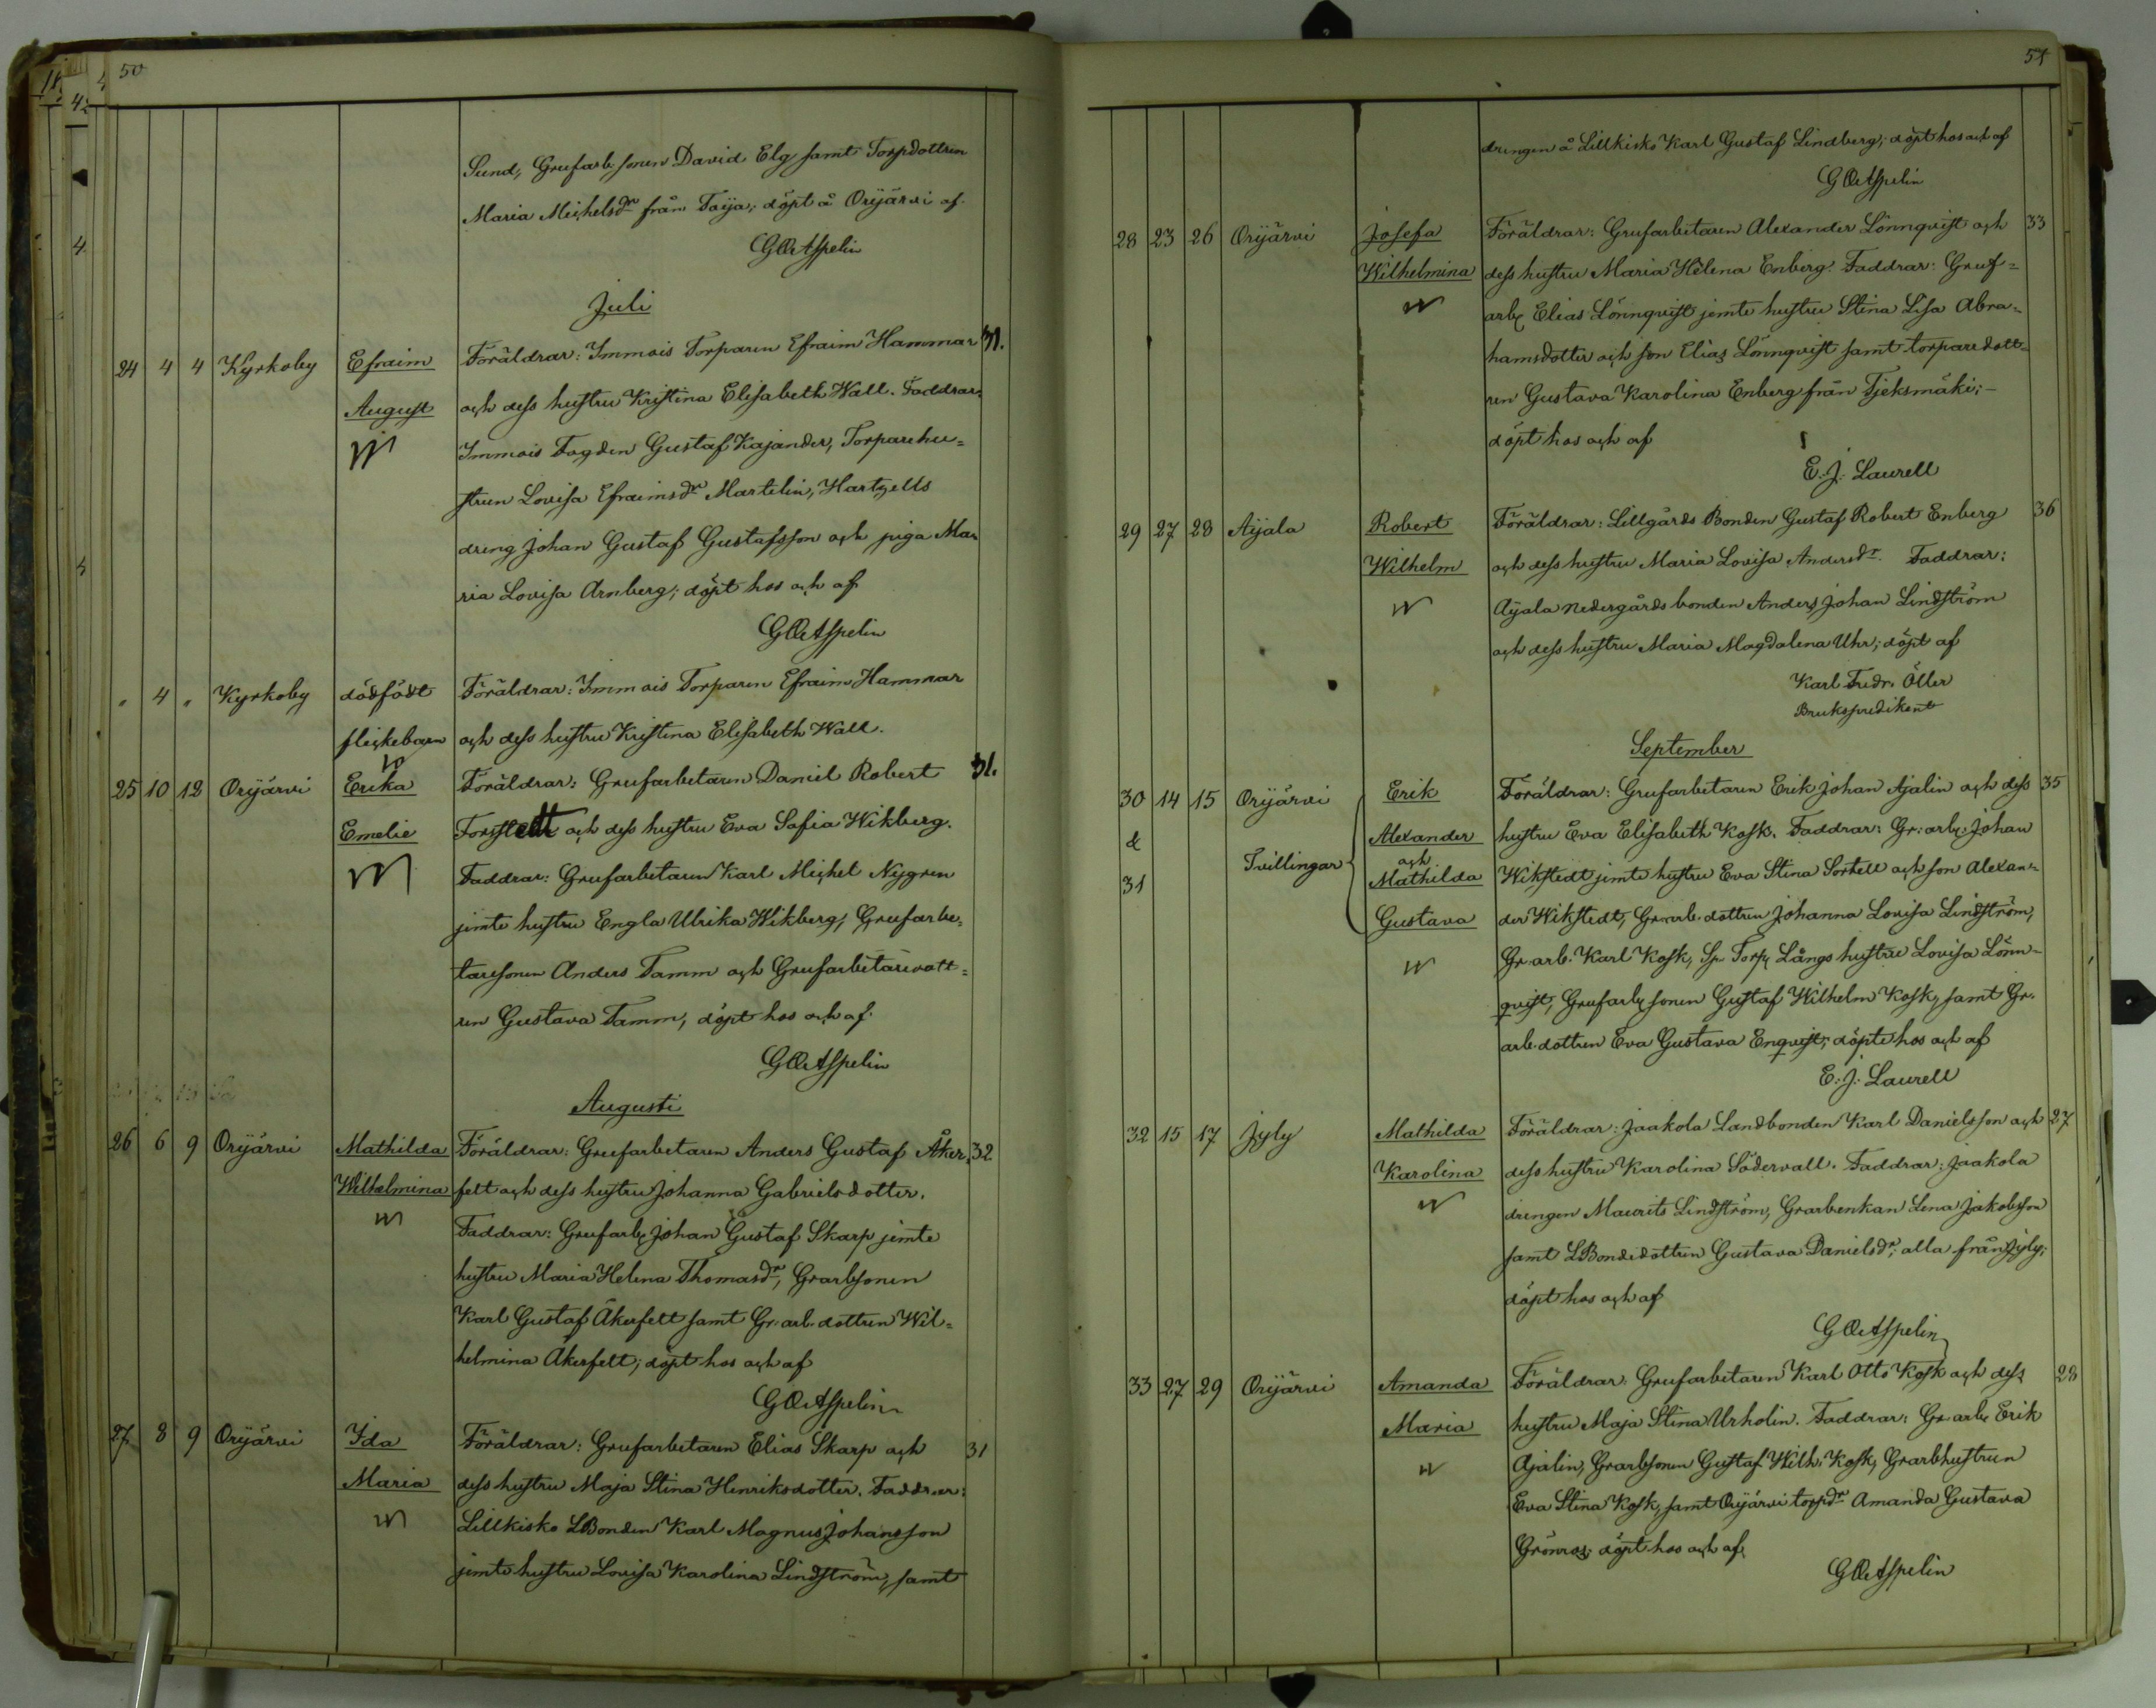 50
Sund, Grufarb. sonen David Elg samt Torpdottren
Maria Michelsdr från Taija; döpt å Orijärvi af
G Oe Aspelin
Juli
24 4 4 Kyrkoby Efraim Föräldrar: Immois Torparen Efraim Hammar 31.
August och dess hustru Kristina Elisabeth Wall. Faddrar:
Immois Fogden Gustaf Kajander, Torparehu=
strun Lovisa Efraimsdr Martelin, Hartzells
dreng Johan Gustaf Gustafsson och piga Ma=
ria Lovisa Arnberg; döpt hos och af
G Oe Aspelin
" 4 " Kyrkoby dödfödt Föräldrar: Immois Torparen Efraim Hammar
flickebarn och dess hustru Kristina Elisabeth Wall.
25 10 12 Orijärvi Erika Föräldrar: Grufarbetaren Daniel Robert 31.
Emelie Forstedt och dess hustru Eva Sofia Wikberg.
Faddrar: Grufarbetaren Karl Michel Nygren
jimte hustru Engla Ulrika Wikberg, Grufarbe=
taresonen Anders Tamm och Grufarbetaredott=
ren Gustava Tamm; döpt hos och af
G Oe Aspelin
Augusti
26 6 9 Orijärvi Mathilda Föräldrar: Grufarbetaren Anders Gustaf Åker= 32
Wilhelmina felt och dess hustru Johanna Gabrielsdotter.
Faddrar: Grufarb. Johan Gustaf Skarp jimte
hustru Maria Helena Thomasdr, Grarbsonen
Karl Gustaf Åkerfelt samt Gr. arb. dottren Wil=
helmina Åkerfelt; döpt hos och af
G Oe Aspelin
27 8 9 Orijärvi Ida Föräldrar: Grufarbetaren Elias Skarp och 31
Maria dess hustru Maja Stina Henriksdotter. Faddrar:
Lillkisko LBonden Karl Magnus Johansson
jimte hustru Lovisa Karolina Lindström, samt
51
drengen å Lillkisko Karl Gustaf Lindberg; döpt hos och af
G Oe Aspelin
28 23 26 Orijärvi Josefa Föräldrar: Grufarbetaren Alexander Lönnqvist och 33
Wilhelmina dess hustru Maria Helena Enberg. Faddrar: Gruf=
arb. Elias Lönnqvist jemte hustru Stina Lisa Abra=
hamsdotter och son Elias Lönnqvist samt torparedott=
ren Gustava Karolina Enberg från Tjeksmäki;
döpt hos och af
E. J. Laurell
29 27 28 Aijala Robert Föräldrar: Lillgårds Bonden Gustaf Robert Enberg 36
Wilhelm och dess hustru Maria Lovisa Andersdr. Faddrar:
Aijala nedergårds bonden Anders Johan Lindström
och dess hustru Maria Magdalena Uhr; döpt af
Karl Fredr. Öller
Brukspredikant
September
30 14 15 Orijärvi Erik Föräldrar: Grufarbetaren Erik Johan Ajalin och dess 35
& Alexander hustru Eva Elisabeth Kosk. Faddrar: Gr: arb: Johan
Tvillingar och
31 Mathilda Wikstedt jimte hustru Eva Stina Sortell och son Alexan=
Gustava der Wikstedt, Gr: arb. dottren Johanna Lovisa Lindström,
Gr. arb. Karl Kosk, Torp. Långs hustru Lovisa Lönn=
qvist, Grufarb. sonen Gustaf Wilhelm Kosk, samt Gr.
arb. dottren Eva Gustava Enqvist; döpte hos och af
E. J. Laurell
32 15 17 Jyly Mathilda Föräldrar: Jaakola Landbonden Karl Danielsson och 27
Karolina dess hustru Karolina Södervall. Faddrar: Jaakola
drengen Maurits Lindström, Grarbenkan Lena Jakobsson
samt LBondedottren Gustava Danielsdr, alla från Jyly;
döpt hos och af
G Oe Aspelin
33 27 29 Orijärvi Amanda Föräldrar: Grufarbetaren Karl Otto Kosk och dess 28
Maria hustru Maja Stina Urholin. Faddrar: Gr arb. Erik
Ajalin, Grarbsonen Gustaf Wilh. Kosk, Grarbhustrun
Eva Stina Kosk, samt Orijärvi torpdr Amanda Gustava
Grönros; döpt hos och af
G Oe Aspelin